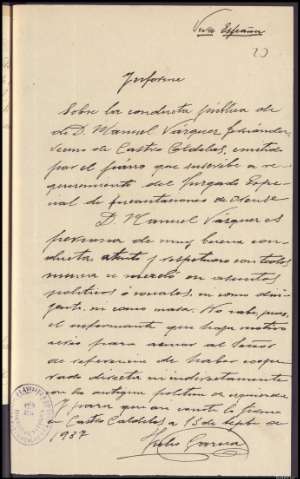 Viva España
Informe
Sobre la conducta pública de
de D. Manuel Vázquez Fernández,
vecino de Castro Caldelas, emitido
por el párroco que suscribe a re-
querimiento del Juzgado Espe-
cial de Incautaciones de Orense
D. Manuel Vázquez es
persona de muy buena con-
ducta, atento y respetuoso con todos
nunca se mezcló en asuntos
políticos ó sociales, ni como diri-
gente, ni como masa. No sabe, pues,
el informante que haya motivo
serio para acusar al Señor
de referencia de haber coope-
rado directa ni indirectamente
con la antigua política de izquierdas
Y para que así conste lo firmo
en Castro Caldelas, a 15 de Septbre de
1937
Julio García